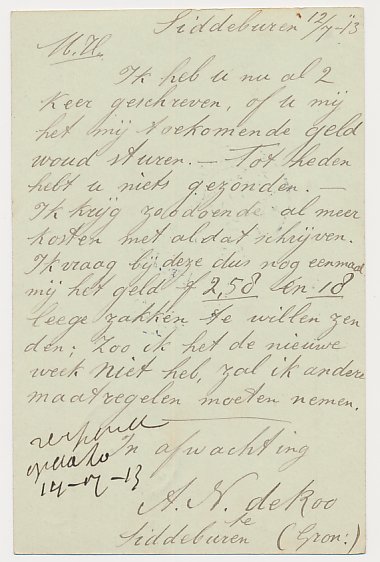 Siddeburen 12/7-'13
M.H.
Ik heb u nu al 2
keer geschreven, of u mij
het mij toekomende geld
woud sturen. — Tot heden
hebt u niets gezonden. —
Ik krijg zoodoende al meer
kosten met al dat schrijven.
Ik vraag bij deze dus nog eenmaal
mij het geld f 2,58 en 18
leege zakken te willen zen
den; Zoo ik het de nieuwe
week niet heb, zal ik andere
maatregelen moeten nemen.
In afwachting
14-7-13
A. N. de Koo
te
Siddeburen (Gron:)